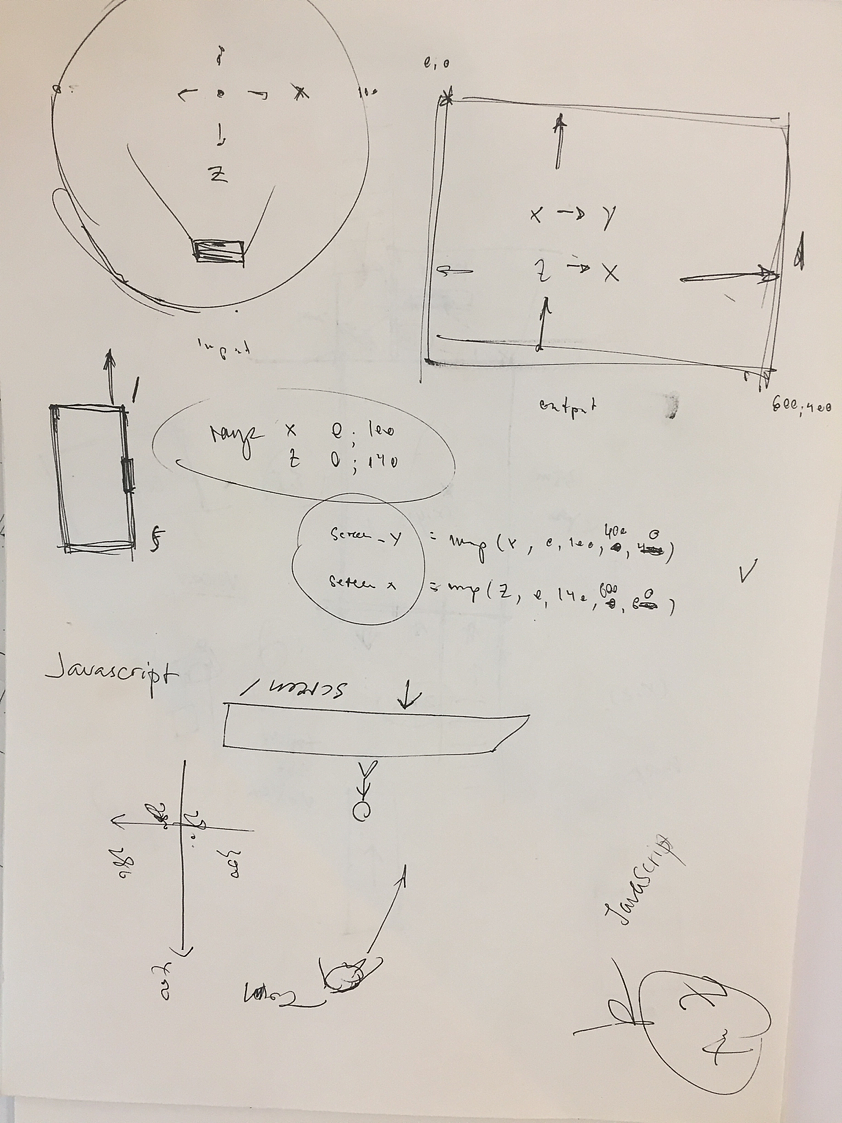 0,0
X
Z
X → Y
Z → X
input
output
600,400
range X 0; 100
Z 0; 140
screen_Y = map (X, 0, 100, 400, 0)
screen X = map (Z, 0, 140, 600, 0)
Javascript
screen
Javascript